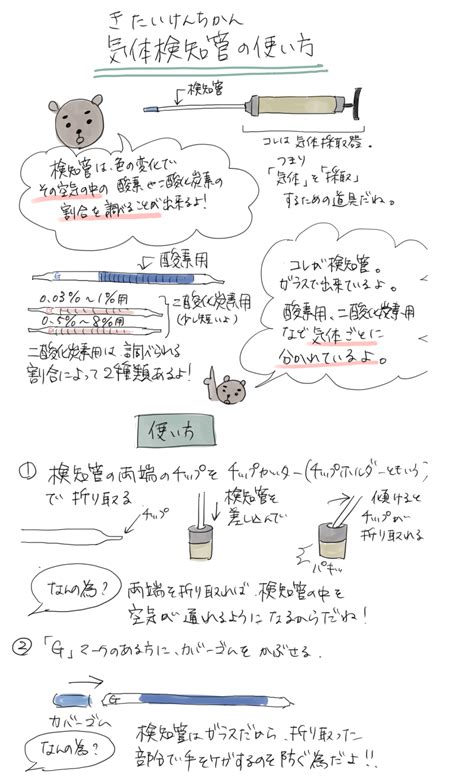 きたいけんちかん
気体検知管の使い方
検知管
コレは気体採取器。
つまり
「気体」を「採取」
するための道具だね。
検知管は、色の変化で
その空気の中の酸素や二酸化炭素の
割合を調べることが出来るよ!
G
酸素用
0.03%~1%用
0.5%~8%用
二酸化炭素用
(少し短いよ)
二酸化炭素用は、調べられる
割合によって2種類あるよ!
コレが検知管。
ガラスで出来ているよ。
酸素用、二酸化炭素用
など気体ごとに
分かれているよ。
使い方
① 検知管の両端のチップをチップカッター(チップホルダーともいう)
で折り取る
チップ
検知管を
差し込んで
傾けると
チップが
折り取れる
パキッ
なんの為?
両端を折り取れば検知管の中を
空気が通れるようになるからだね!
② 「G」マークのある方に、カバーゴムをかぶせる。
G
カバーゴム
なんの為?
検知管はガラスだから、折り取った
部分で手をケガするのを防ぐ為だよ!!